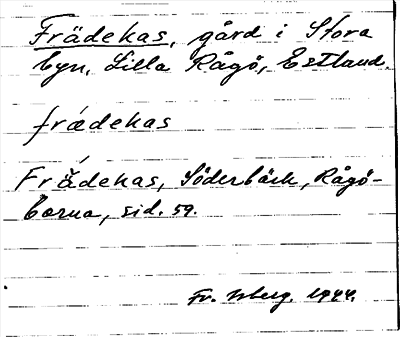 Frädekas, gård i Stora
byn, Lilla Rågö, Estland.
frádekas
Frä́dekas, Söderbäck, Rågö-
borna, sid. 59.
Fr. Isberg. 1944.